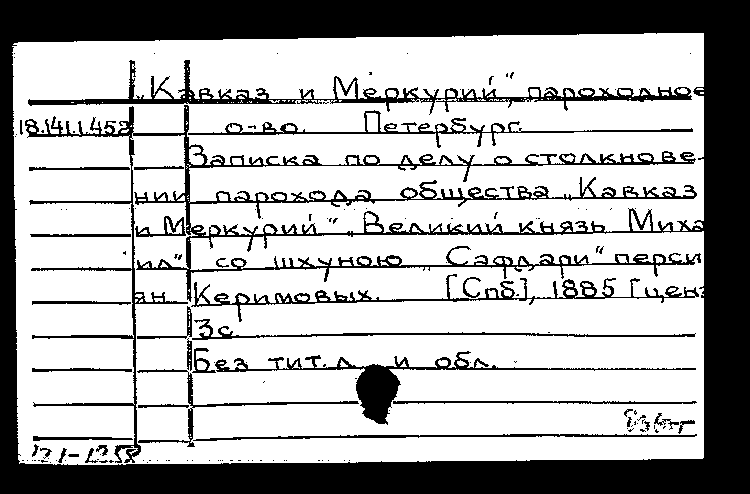 „Кавказ и Меркурий“, пароходное
18.141.1.452 о-во. Петербург.
Записка по делу о столкнове-
нии парохода общества „Кавказ
и Меркурий“ „Великий князь Миха
ил“ со шхуною „Сафдари“ перси
ян Керимовых. [Спб], 1885 [ценз
3с.
Без тит. л. и обл.